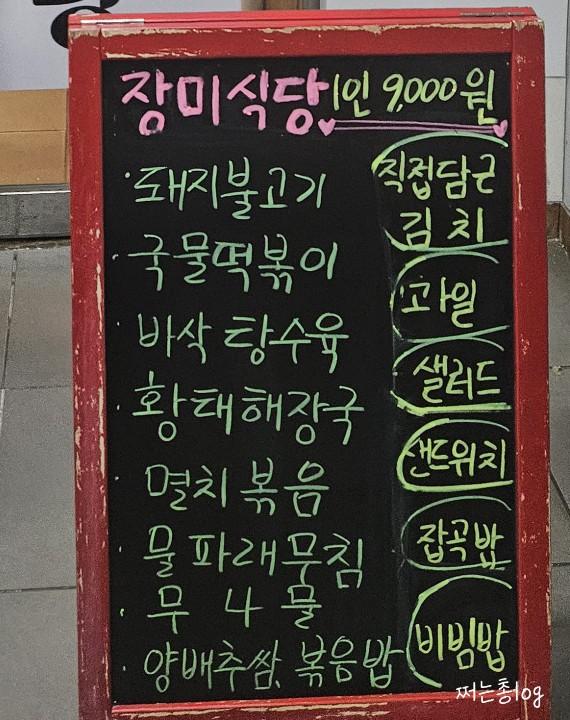 장미식당 1인 9,000원
· 돼지불고기
· 국물떡볶이
· 바삭 탕수육
· 황태해장국
· 멸치볶음
· 물파래무침
· 무 나물
· 양배추쌈, 볶음밥
직접담근
김치
과일
샐러드
샌드위치
잡곡밥
비빔밥
쩌는총log